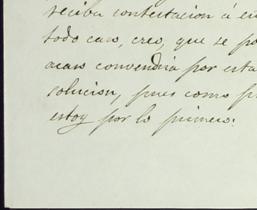 reciba contestacion á
todo caso, creo, que se
acaso convendria por esta
solucion, pues como
estoy por lo primero.